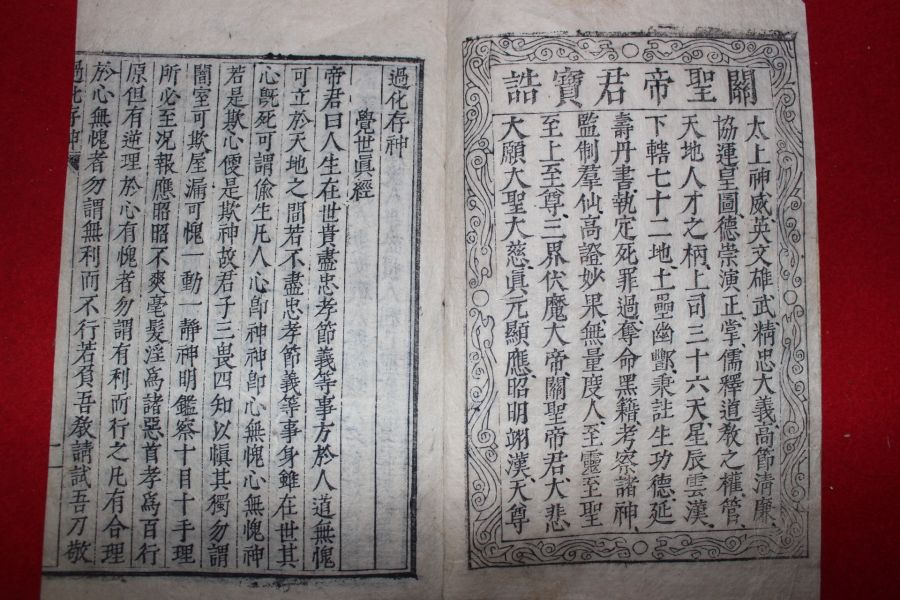 關聖帝君寶誥
太上神威、英文雄武、精忠大義、高節清廉、
協運皇圖、德崇演正、掌儒釋道教之權、管
天地人才之柄、上司三十六天、星辰雲漢、
下轄七十二地、土壘幽酆、秉註生功德、延
壽丹書、執定死罪過、奪命黑籍、考察諸神、
監制羣仙、高證妙果、無量度人、至靈至聖
至上至尊、三界伏魔大帝、關聖帝君、大悲、
大願、大聖、大慈、眞元顯應、昭明翊漢、天尊
過化存神
覺世眞經
帝君曰人生在世貴盡忠孝節義等事方於人道無愧
可立於天地之間若不盡忠孝節義等事身雖在世其
心旣死可謂偸生凡人心卽神神卽心無愧心無愧神
若是欺心便是欺神故君子三畏四知以愼其獨勿謂
闇室可欺屋漏可愧一動一靜神明鑑察十目十手理
所必至況報應昭昭不爽毫髮淫爲諸惡首孝爲百行
原但有逆理於心有愧者勿謂有利而行之凡有合理
於心無愧者勿謂無利而不行若負吾敎請試吾刀敬
過化存神
一